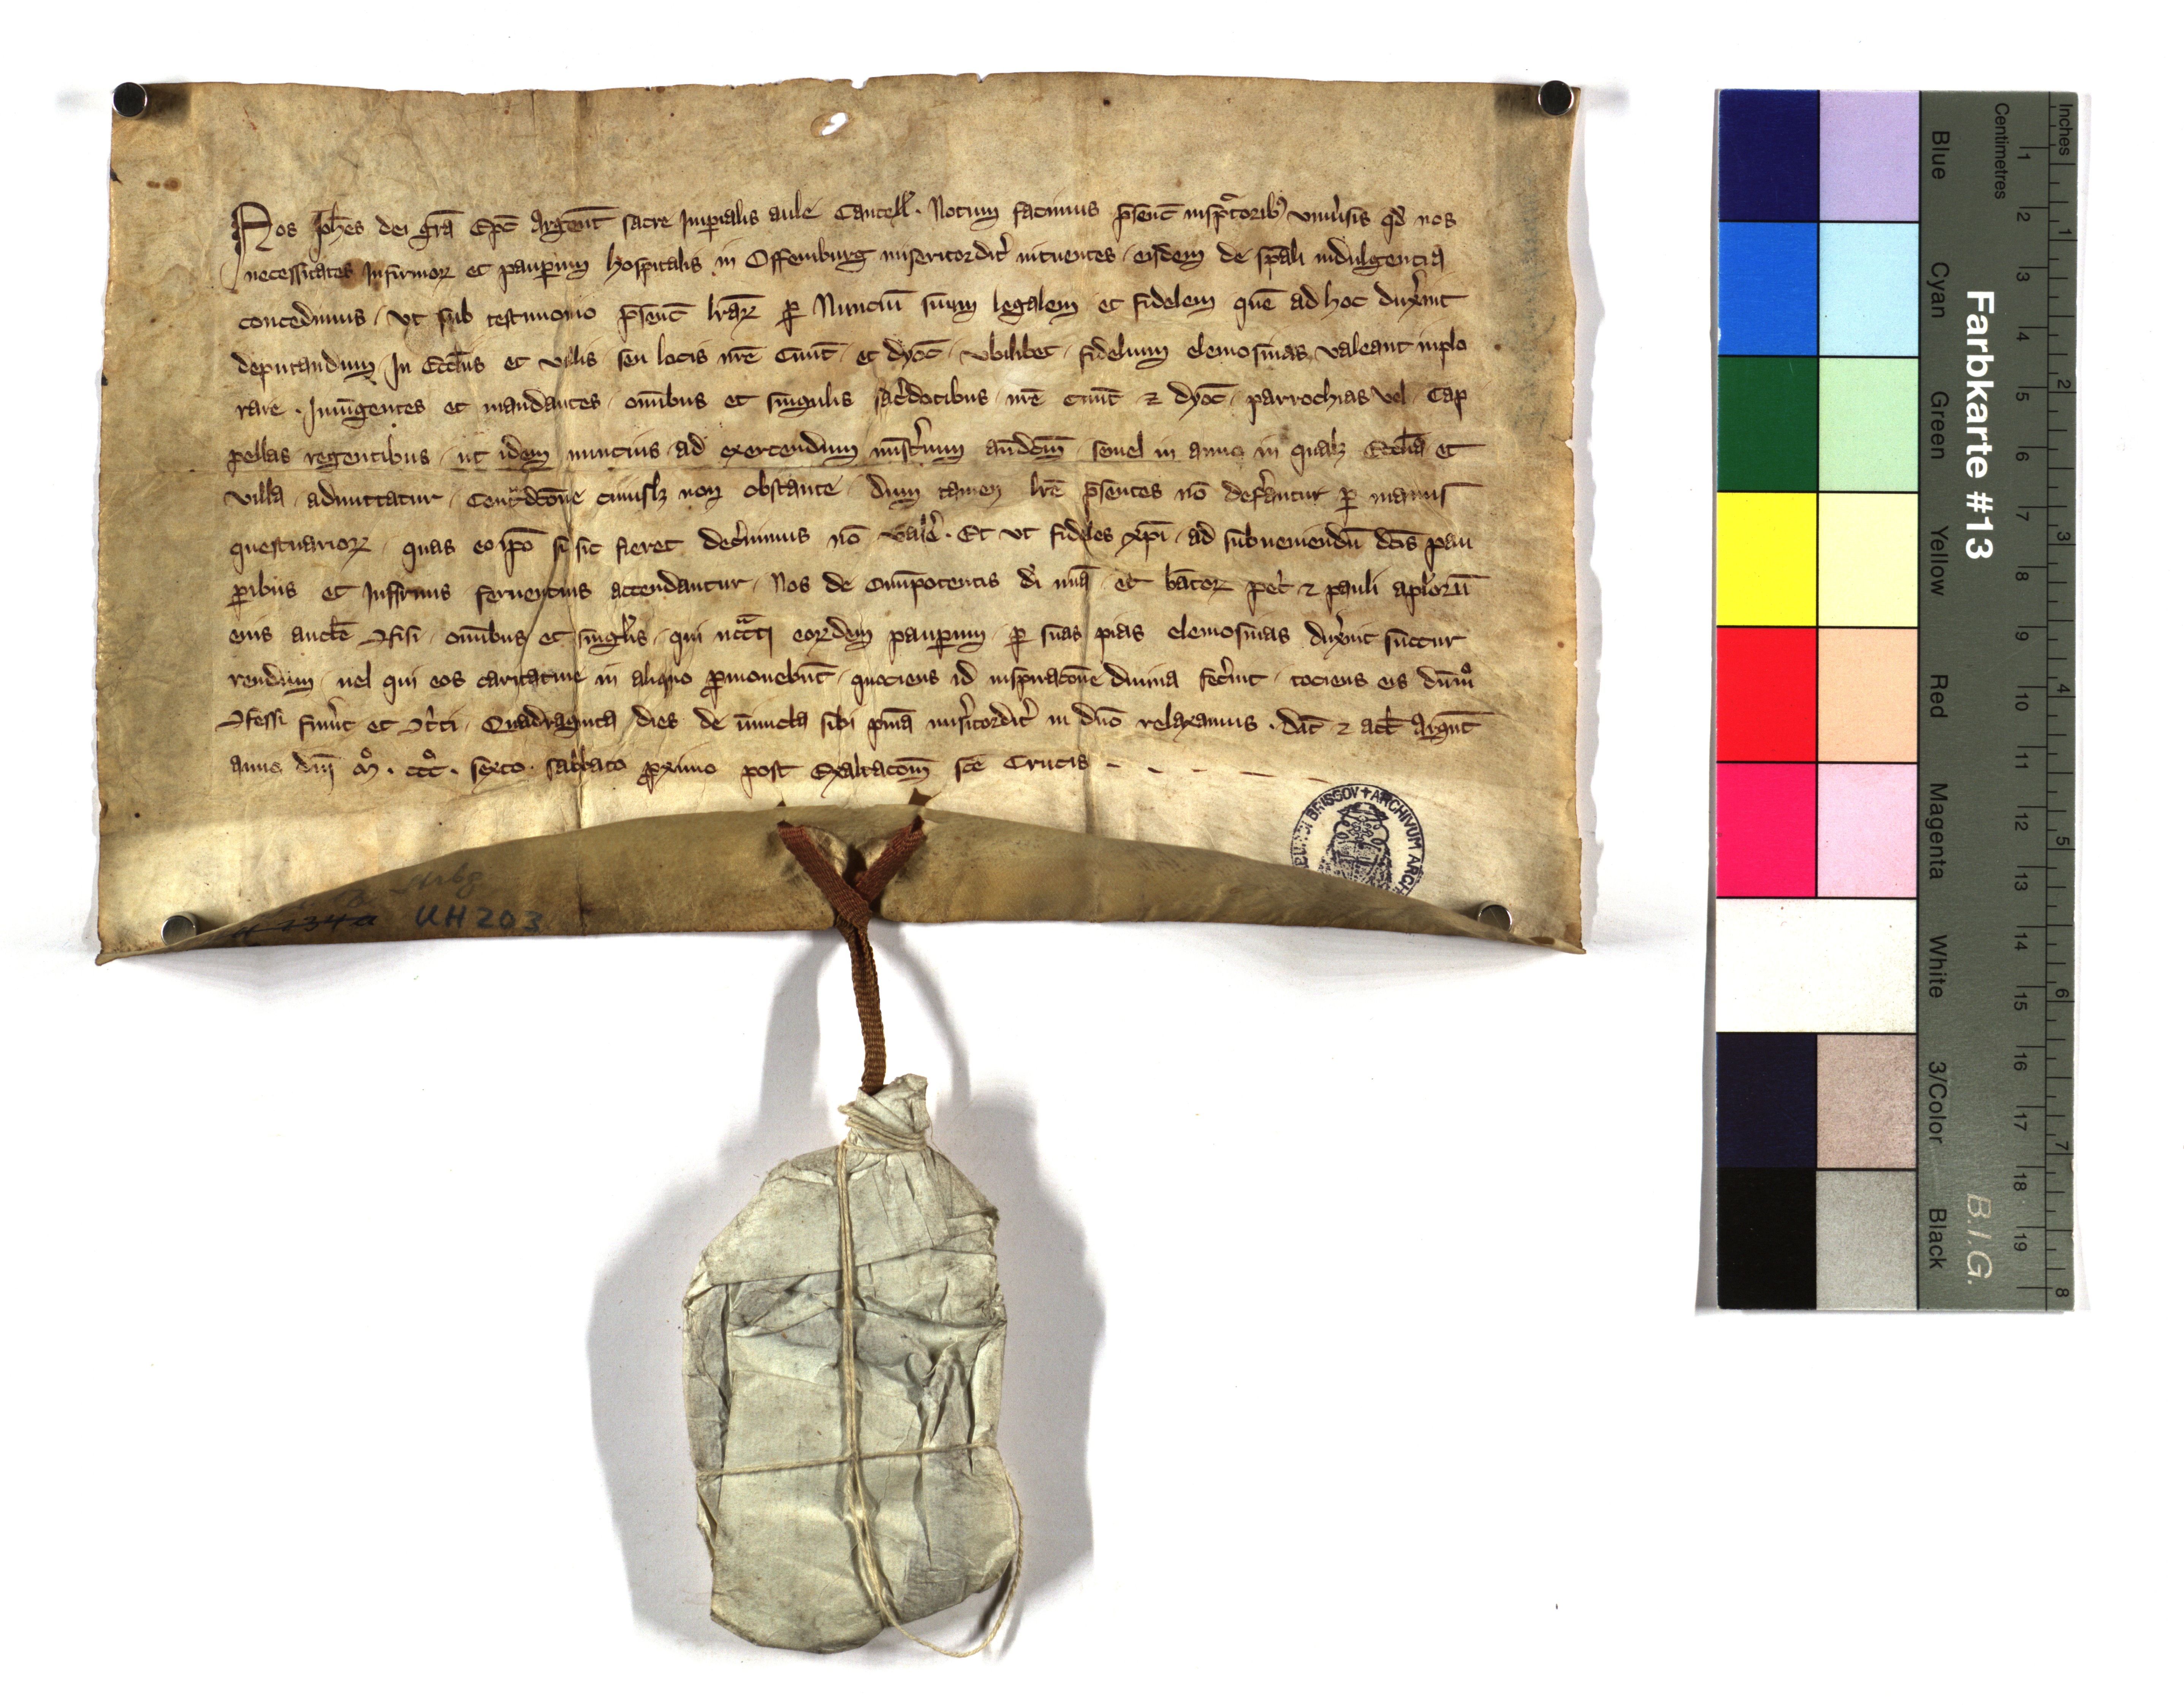 Nos Joh̄es dei gr̄a Ep̄c Argent̄ sacre Imp̄ialis aule Cancell̄ · Notum facimus p̄sent̄ insp̄ctorib; vniu̓sis qd̓ nos
necessitates Infirmoꝝ et paup̄um hospitalis in Offemburg misericordit̓ intuentes · eisdem de sp̄ali indulgencia
concedimus · vt sub testimonio p̄sent̄ lr̄aꝝ ꝑ Nunciū suum legalem et fidelem quē ad hoc dux̓int
deputandum · In Eccl̄iis et villis seu locis nr̄e Ciuit̄ · et dyoc̄ · vbilibet · fidelium elemosinas valeant inplo
rare · Iniu̅gentes et mandantes · om̄ibus et singulis sac̓dotibus · nr̄e Ciuit̄ ⁊ dyoc̄ · parrochias vel · Cap
pellas regentibus · ut idem nuncius · ad exercendum mist̓ium an̄dc̄m · semel in anno in qualꝫ Eccl̄ia et
villa · admittatur · Cont̓dc̄one cuiuslꝫ non obstante · Dum tamen lr̄e p̄sentes nō def̓antur ꝑ manus
questuarioꝝ · quas eo ip̄o si sic fieret dec̓nimus nō val̓e · Et vt fideles xp̄i · ad subueniendū dc̄is pau
ꝑibus et Infirmis feruentius accendantur · Nos de om̄ipotentis dī mīa · et b̄atoꝝ pet̓ ⁊ pauli ap̄loru̅
eius auct̄e ꝯfisi · om̄ibus et singl̓is · qui nc̄c̄ati eoꝝdem paup̄um · ꝑ suas pias elemosinas dux̓int succur
rendum · uel qui eos caritatiue in aliquo ꝓmouebūt · quociens id inspirac̄one diuina fec̓int · tociens eis dūmº
ꝯfessi fu̓int et ꝯt̓ti · Quadraginta dies de iniūcta sibi pn̄ia mis̓icordit̓ in dn̄o relaxamus · Dat̄ ⁊ act̄ Argn̄t
anno dn̄i mº · cccº · sexto · sabbato ꝓximo post Exaltac̄om̄ sc̄e Crucis
Strbg
134a UH 203
BRISGOV + ARCHIVUM ARCH
Farbkarte #13
B.I.G.
Inches
1 2 3 4 5 6 7 8
Centimetres
1 2 3 4 5 6 7 8 9 10 11 12 13 14 15 16 17 18 19
Blue Cyan Green Yellow Red Magenta White 3/Color Black